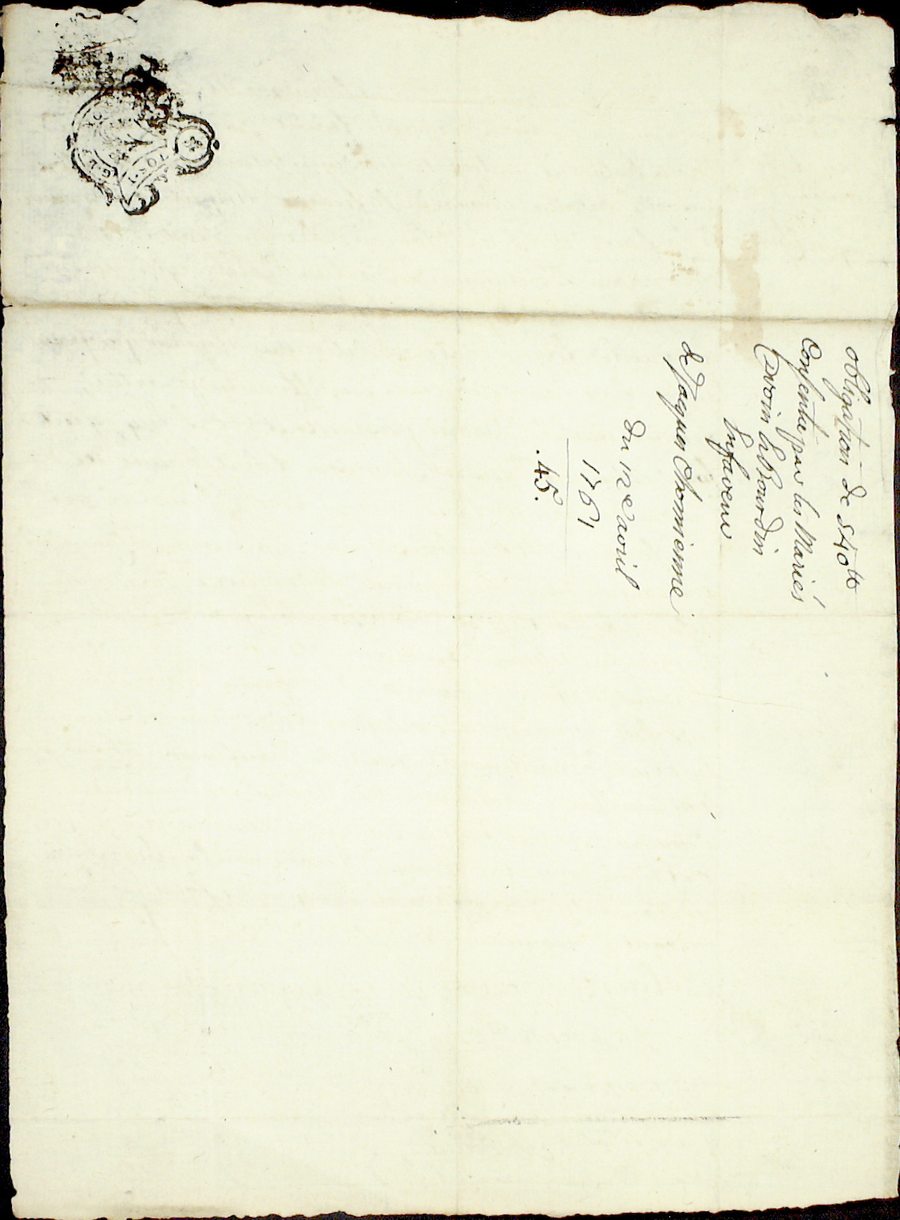 obligation de 540 ₶
Consentie par les Mariés
Lebourdin
En faveur
de Jaques Chomienne
du 12e avril
1761
.45.